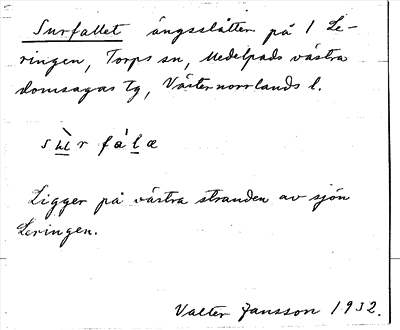 Surfallet ängsslåtter på 1 Le-
ringen, Torps sn, Medelpads västra
domsagas tg, Västernorrlands l.
sùr fálæ
Ligger på västra stranden av sjön
Leringen.
Valter Jansson 1932.